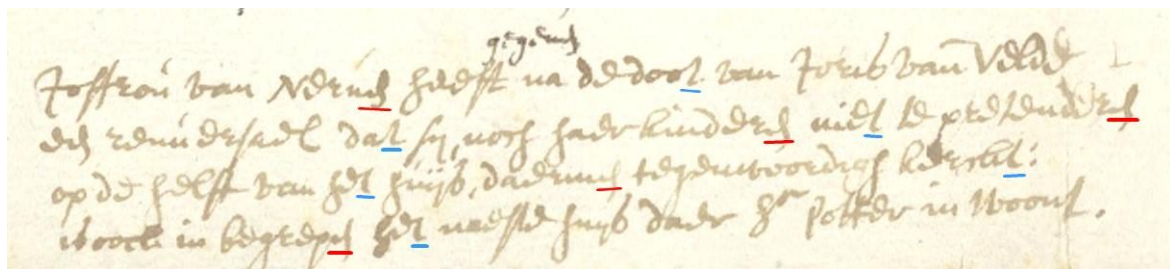 gegeven
Joffrou van Neruen heeft na de doot van Joris van Velde
een renversael dat sy, noch haer kinderen niet te pretenderen
op de helft van het huijs, daerinne tegenwoordigh
in begrepen het naeste huijs daer hr Potter in Woont.